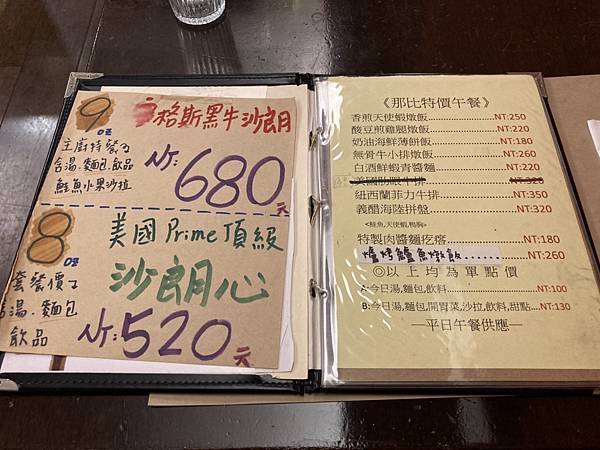 9 oz
安格斯黑牛沙朗
主廚特餐
含湯.麵包.飲品
鮭魚小果沙拉
NT:680元
8 oz
美國Prime頂級
沙朗心
套餐價
含湯.麵包
飲品
NT:520元
《那比特價午餐》
香煎天使蝦燉飯...............NT:250
酸豆煎雞腿燉飯...............NT:220
奶油海鮮薄餅飯...............NT:180
無骨牛小排燉飯...............NT:260
白酒鮮蝦青醬麵...............NT:220
美國肋眼牛排...............NT:320
紐西蘭菲力牛排...............NT:350
義醋海陸拼盤...............NT:320
<鮭魚,天使蝦,鴨胸>
特製肉醬麵疙瘩...............NT:180
爐烤鱸魚燉飯.......NT:260
◎以上均為單點價
A:今日湯,麵包,飲料...............NT:100
B:今日湯,麵包,開胃菜,沙拉,飲料,甜點....NT:130
—平日午餐供應—